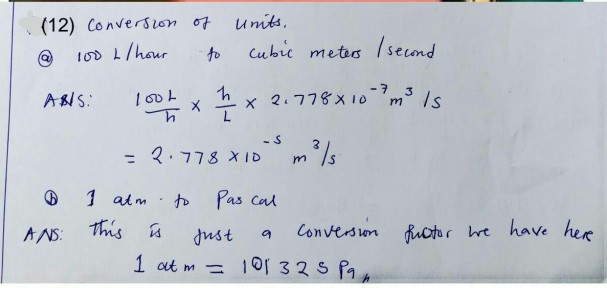 (12) Conversion of units.
ⓐ 100 L/hour to cubic meters / second
ANS: 100L/h × h/L × 2.778×10⁻⁷ m³/s
= 2.778 ×10⁻⁵ m³/s
ⓑ 1 atm. to Pascal
ANS: This is just a conversion factor we have here
1 atm = 101325 Pa,,